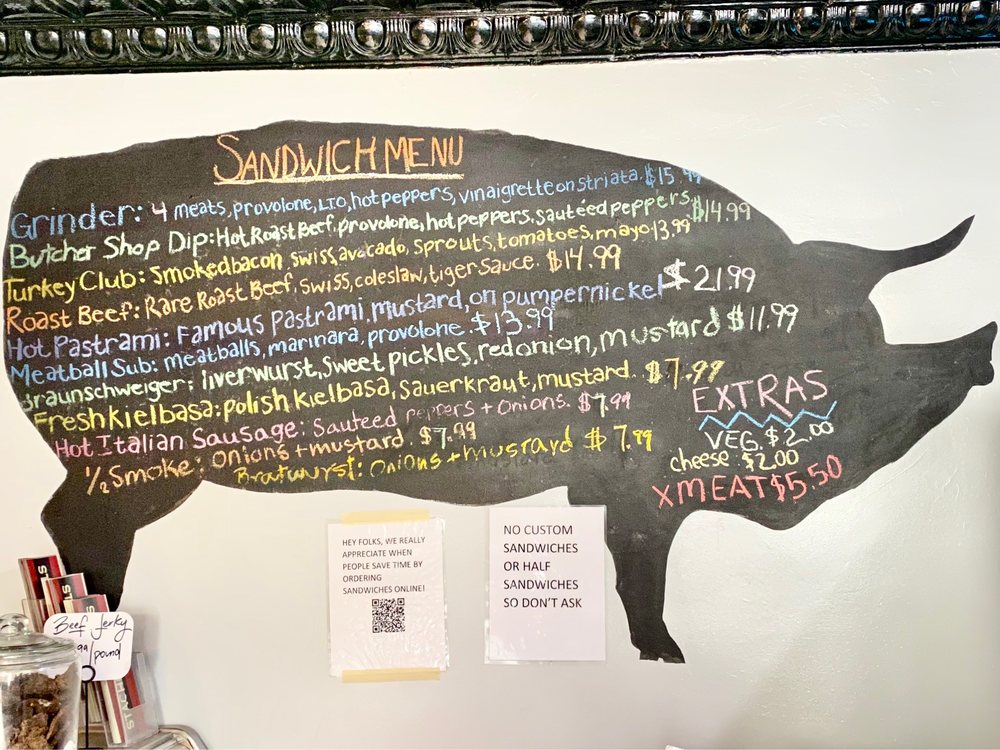 SANDWICH MENU
Grinder: 4 meats, provolone, LTO, hot peppers, vinaigrette on striata. $15.99
Butcher Shop Dip: Hot Roast Beef, provolone, hot peppers, sautéed peppers $14.99
Turkey Club: Smoked bacon swiss, avocado, sprouts, tomatoes, mayo 13.99
Roast Beef: Rare Roast Beef, swiss, coleslaw, tiger sauce. $14.99
Hot Pastrami: Famous Pastrami, mustard, on pumpernickel $21.99
Meatball Sub: meatballs, marinara, provolone. $13.99
Braunschweiger: liverwurst, sweet pickles, red onion, mustard $11.99
Fresh kielbasa: polish kielbasa, sauerkraut, mustard. $7.99
Hot Italian Sausage: Sauteed peppers + onions. $7.99
1/2 Smoke: onions + mustard. $7.99
Bratwurst: onions + mustard $7.99
EXTRAS
VEG. $2.00
cheese. $2.00
X MEAT $5.50
HEY FOLKS, WE REALLY
APPRECIATE WHEN
PEOPLE SAVE TIME BY
ORDERING
SANDWICHES ONLINE!
NO CUSTOM
SANDWICHES
OR HALF
SANDWICHES
SO DON'T ASK
Beef Jerky
/pound